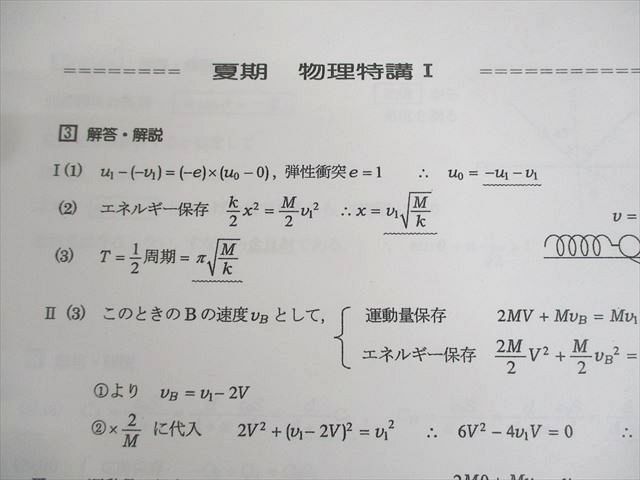 ======== 夏期 物理特講 I ========
3 解答・解説
I (1) u₁-(-v₁)=(-e)×(u₀-0), 弾性衝突 e=1 ∴ u₀=-u₁-v₁
(2) エネルギー保存 k/2 x²=M/2 v₁² ∴x=v₁√(M/k)
v=
(3) T=1/2周期=π√(M/k)
II (3) このときの B の速度 v_B として, { 運動量保存 2MV+Mv_B=Mv₁
エネルギー保存 2M/2 V²+M/2 v_B²=
①より v_B=v₁-2V
②×2/M に代入 2V²+(v₁-2V)²=v₁² ∴ 6V²-4v₁V=0 ∴